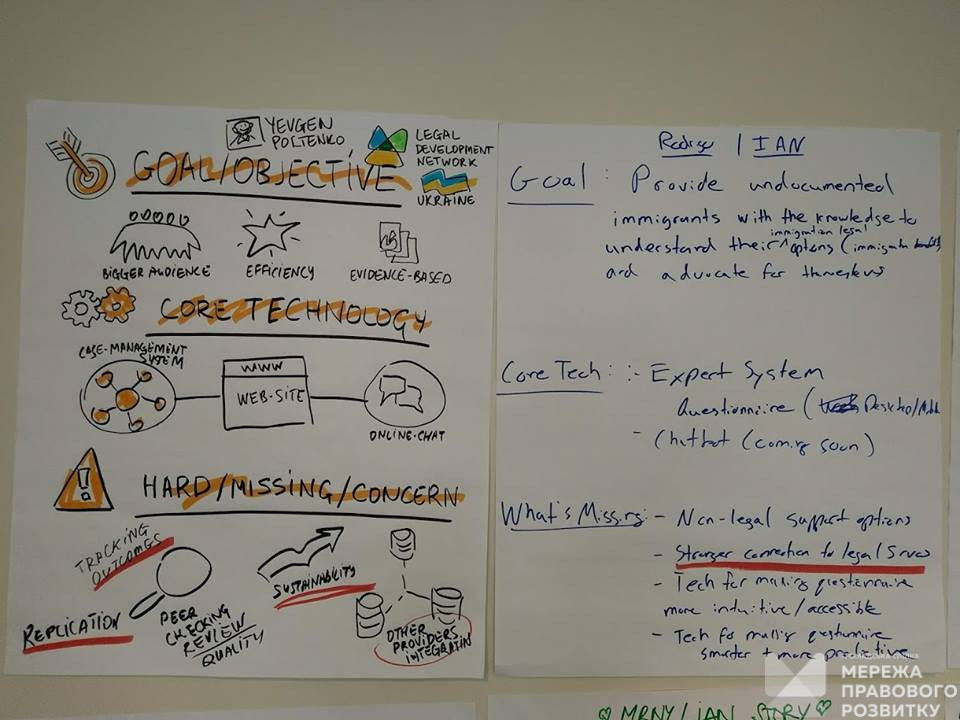 YEVGEN
POLTENKO
LEGAL
DEVELOPMENT
NETWORK
UKRAINE
GOAL/OBJECTIVE
BIGGER AUDIENCE
EFFICIENCY
EVIDENCE-BASED
CORE TECHNOLOGY
CASE-MANAGEMENT
SYSTEM
WWW
WEB-SITE
ONLINE-CHAT
!
HARD/MISSING/CONCERN
TRACKING
OUTCOMES
REPLICATION
PEER
CHECKING
REVIEW
QUALITY
SUSTAINABILITY
OTHER
PROVIDERS
INTEGRATIN
/ IAN
Goal : Provide undocumented
immigrants with the knowledge to
immigration legal
understand their options (immigration
and advocate for themselves
Core Tech :- Expert System
Questionnaire ( Desktop/Mobile
- Chatbot (coming soon)
What's Missing - Non-legal support options
- Stronger connection to legal Srvcs
- Tech for making questionnaire
more intuitive/accessible
- Tech for making questionnaire
smarter + more predictive
МЕРЕЖА
ПРАВОВОГО
РОЗВИТКУ
♡ MRNY/IAN STORY ♡